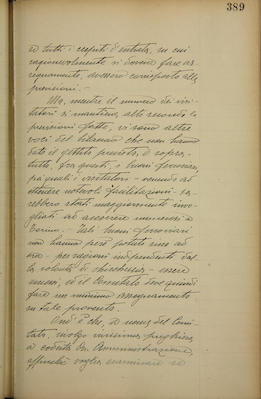 389
ed tutti i cespiti d'entrata, su cui
ragionevolmente si doveva fare as-
segnamento, avessero corrisposto alle
previsioni. -
Ma, mentre il numero dei visi-
tatori si mantiene, alle seconde
previsioni fatte, vi sono altre
voci del bilancio che non hanno
dato il gettito previsto, e sopra-
tutto, fra questi, i buoni ferroviari,
pei quali i visitatori - venendo ad
ottenere notevoli facilitazioni sa-
rebbero stati maggiormente invo-
gliati ad accorrere numerosi a
Torino. - Tali buoni ferroviari
non hanno però potuto sino ad
ora - per ragioni indipendenti dal-
la volontà di chicchessia - essere
emessi, ed il Comitato deve quindi
fare un minimo assegnamento
su tale provento.
Ond'è che, a nome del Comi-
tato, rivolgo vivissima preghiera
a codesta On. Amministrazione,
affinché voglia esaminare se